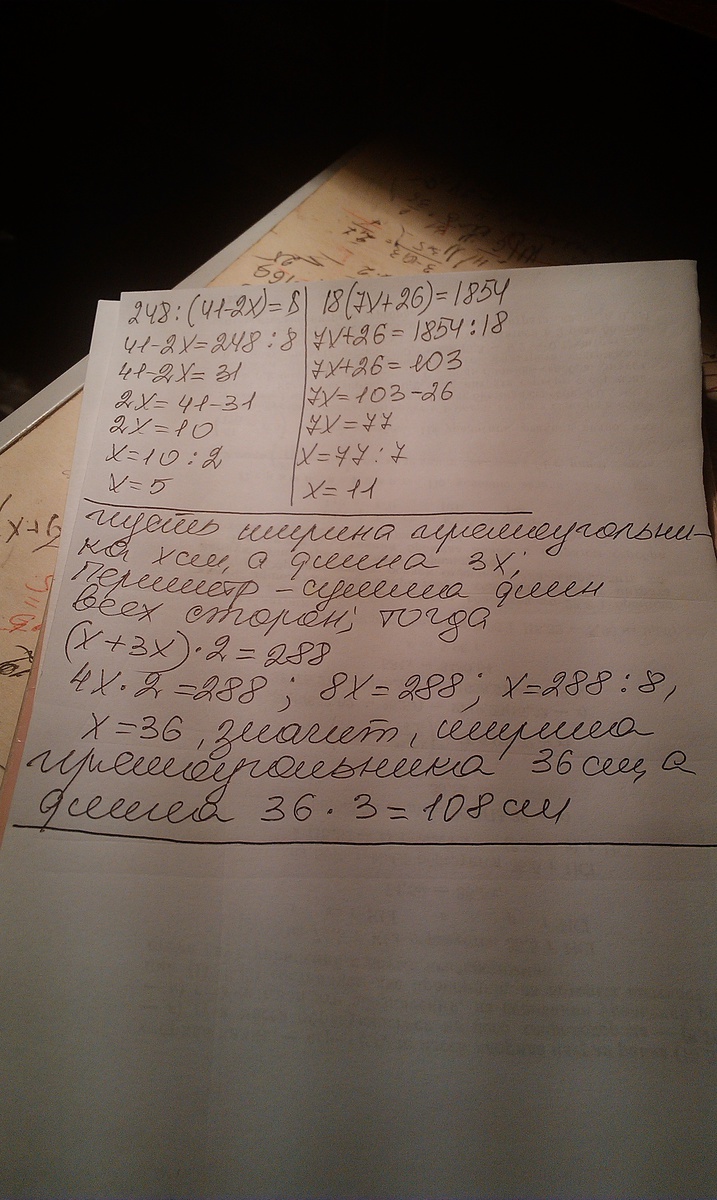 248:(41-2x)=8
41-2x=248:8
41-2x=31
2x=41-31
2x=10
x=10:2
x=5
18(7x+26)=1854
7x+26=1854:18
7x+26=103
7x=103-26
7x=77
x=77:7
x=11
пусть ширина прямоугольни-
ка xсм, а длина 3x;
периметр - сумма длин
всех сторон; тогда
(x+3x)·2=288
4x·2=288; 8x=288; x=288:8,
x=36, значит, ширина
прямоугольника 36см, а
длина 36·3=108см